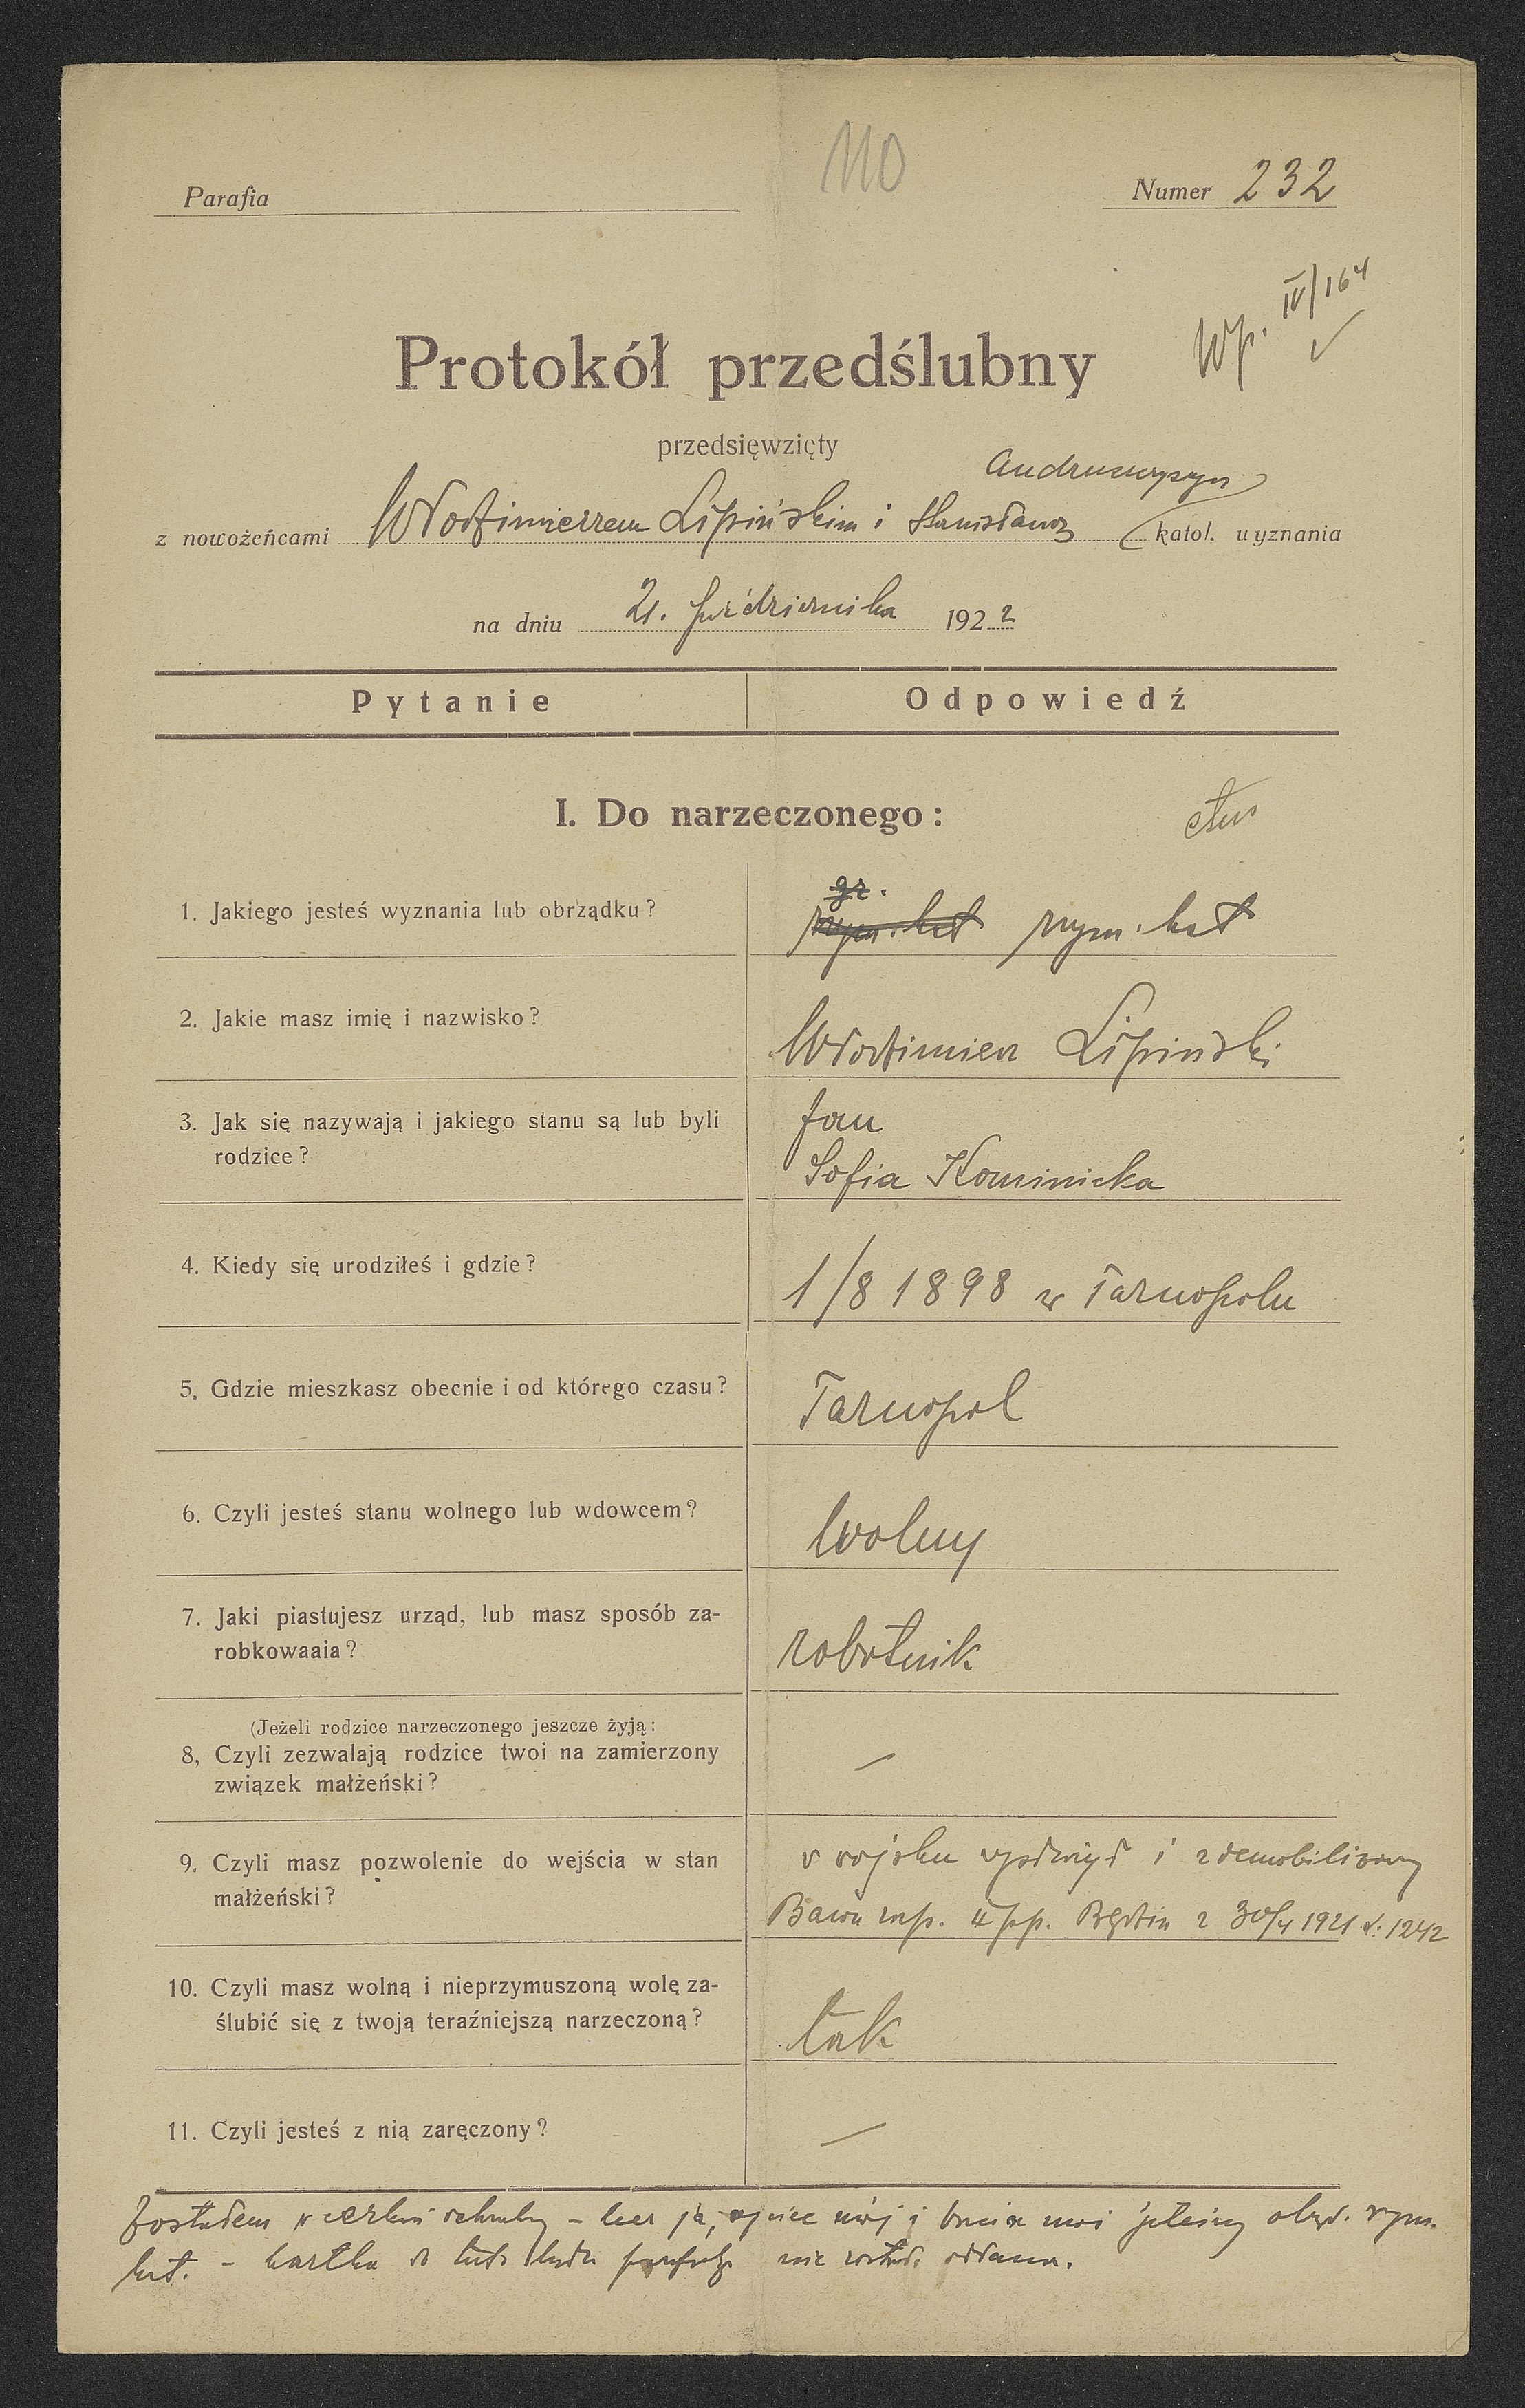 110
Parafia
Numer 232
Wp. IV/164
Protokół przedślubny
przedsięwzięty
z nowożeńcami Włodzimierzem Lipińskim i Stanisławą katol. wyznania
na dniu 21. października 1922
Pytanie Odpowiedź
I. Do narzeczonego:
1. Jakiego jesteś wyznania lub obrządku? gr. rzym. kat rzym. kat
2. Jakie masz imię i nazwisko? Włodzimierz Lipiński
3. Jak się nazywają i jakiego stanu są lub byli Jan
rodzice? Sofia Kominicka
4. Kiedy się urodziłeś i gdzie? 1/8 1898 w Tarnopolu
5. Gdzie mieszkasz obecnie i od którego czasu? Tarnopol
6. Czyli jesteś stanu wolnego lub wdowcem? wolny
7. Jaki piastujesz urząd, lub masz sposób za-
robkowaaia? robotnik
(Jeżeli rodzice narzeczonego jeszcze żyją:
8, Czyli zezwalają rodzice twoi na zamierzony —
związek małżeński?
9. Czyli masz pozwolenie do wejścia w stan w wojsku wysłużył i zdemobilizowany
małżeński? 1921 L: 1242
10. Czyli masz wolną i nieprzymuszoną wolę za-
ślubić się z twoją teraźniejszą narzeczoną? tak
11. Czyli jesteś z nią zaręczony? —
Zostałem w cerkwi – lecz ja, ojciec mój i bracia moi jesteśmy obrz. rzym.
kat. – kartka nie została oddana.